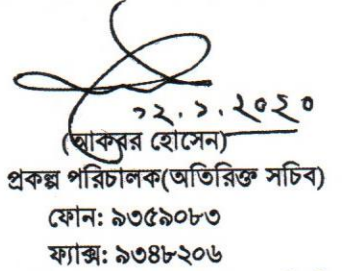 ১২.১.২০২০
(আকবর হোসেন)
প্রকল্প পরিচালক(অতিরিক্ত সচিব)
ফোন: ৯৩৫৯০৮৩
ফ্যাক্স: ৯৩৪৮২০৬